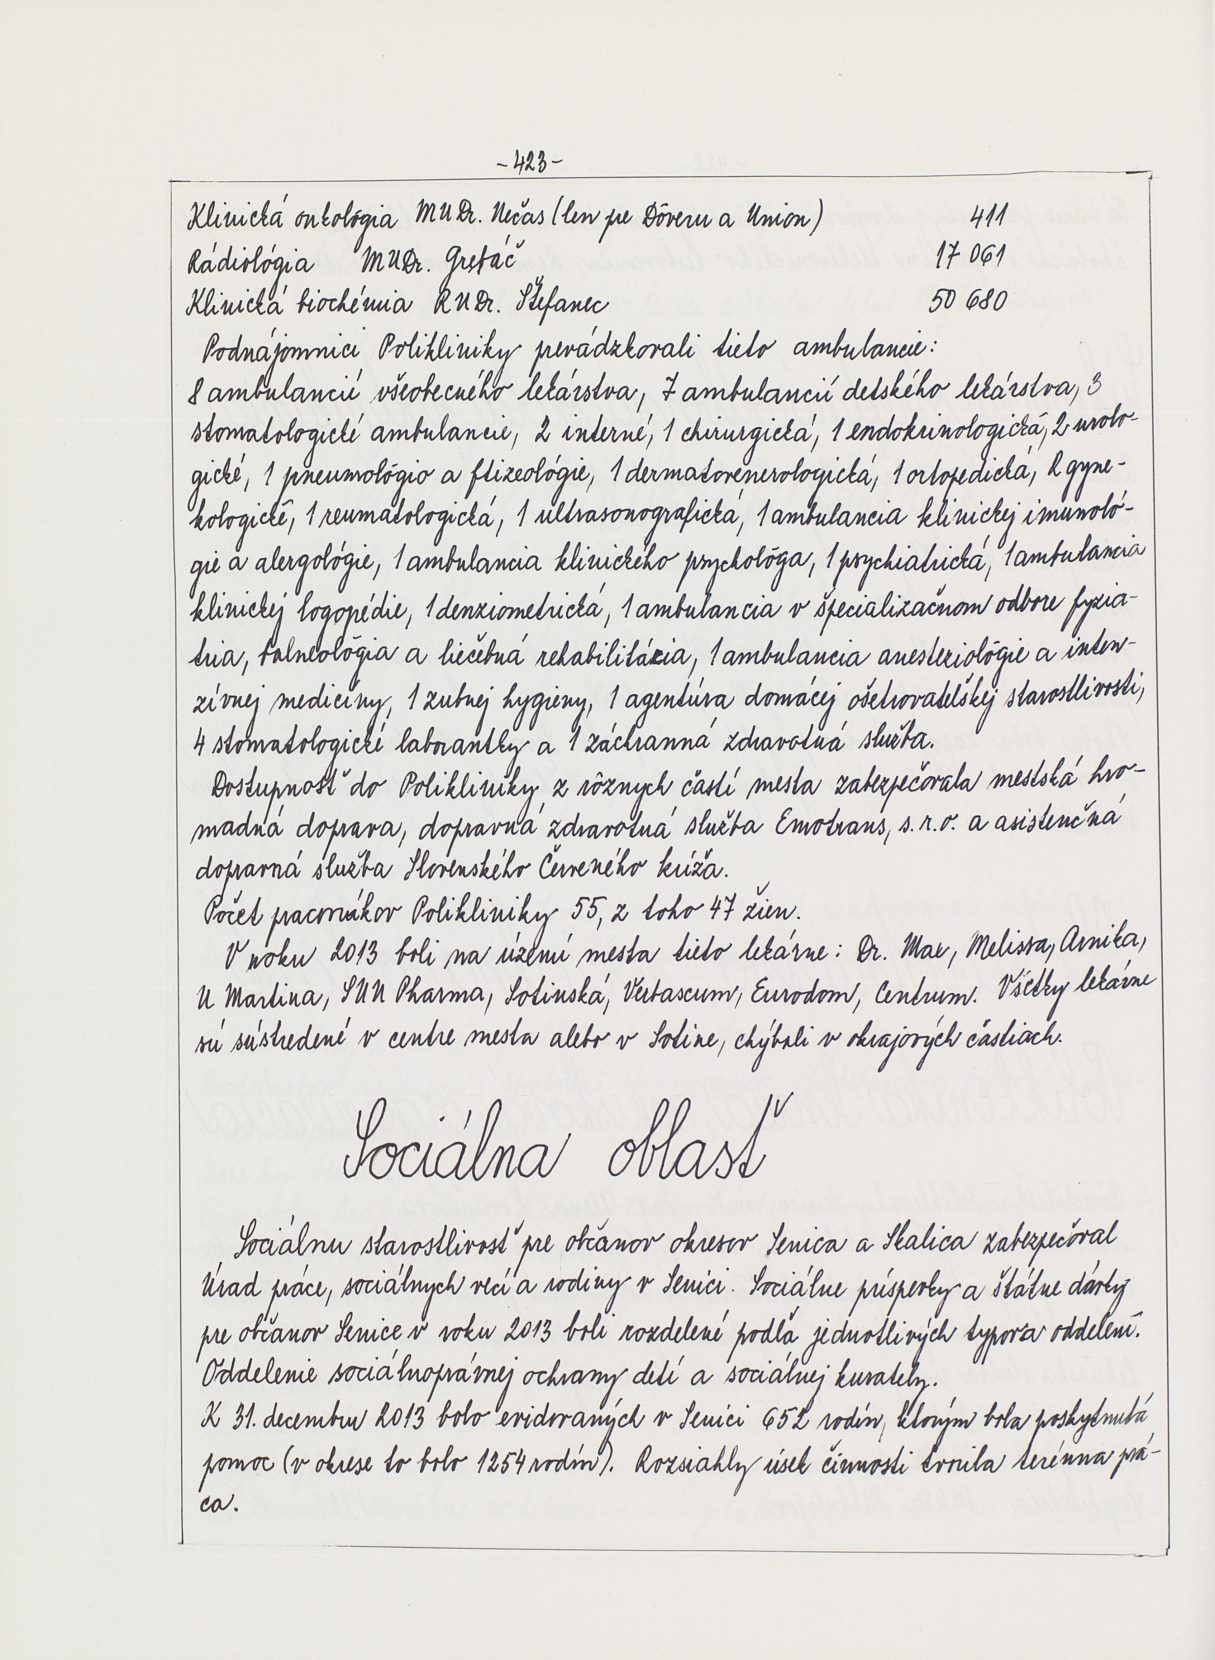 -423-
Klinická onkológia MUDr. Nečas (len pre Dôveru a Union) 411
Rádiológia MUDr. Grebáč 17 061
Klinická biochémia RNDr. Štefanec 50 680
Podnájomníci Polikliniky prevádzkovali tieto ambulancie:
8 ambulancií všeobecného lekárstva, 7 ambulancií detského lekárstva, 3
stomatologické ambulancie, 2 interné, 1 chirurgická, 1 endokrinologická, 2 urolo-
gické, 1 pneumológio a ftizeológie, 1 dermatovenerologická, 1 ortopedická, 2 gyne-
kologické, 1 reumatologická, 1 ultrasonografická, 1 ambulancia klinickej imunoló-
gie a alergológie, 1 ambulancia klinického psychológa, 1 psychiatrická, 1 ambulancia
klinickej logopédie, 1 denziometrická, 1 ambulancia v špecializačnom odbore fyzia-
tria, balneológia a liečebná rehabilitácia, 1 ambulancia anesteziológie a inten-
zívnej medicíny, 1 zubnej hygieny, 1 agentúra domácej ošetrovateľskej starostlivosti,
4 stomatologické laborantky a 1 záchranná zdravotná služba.
Dostupnosť do Polikliniky z rôznych častí mesta zabezpečovala mestská hro-
madná doprava, dopravná zdravotná služba Emotrans, s.r.o. a asistenčná
dopravná služba Slovenského Červeného kríža.
Počet pracovníkov Polikliniky 55, z toho 47 žien.
V roku 2013 boli na území mesta tieto lekárne: Dr. Max, Melissa, Arnika,
U Martina, SUN Pharma, Sotinská, Verbascum, Eurodom, Centrum. Všetky lekárne
sú sústredené v centre mesta alebo v Sotine, chýbali v okrajových častiach.
Sociálna oblasť
Sociálnu starostlivosť pre občanov okresov Senica a Skalica zabezpečoval
Úrad práce, sociálnych vecí a rodiny v Senici. Sociálne príspevky a štátne dávky
pre občanov Senice v roku 2013 boli rozdelené podľa jednotlivých typova oddelení.
Oddelenie sociálnoprávnej ochrany detí a sociálnej kurately.
K 31. decembru 2013 bolo evidovaných v Senici 652 rodín, ktorým bola poskytnutá
pomoc (v okrese to bolo 1254 rodín). Rozsiahly úsek činnosti tvorila terénna prá-
ca.